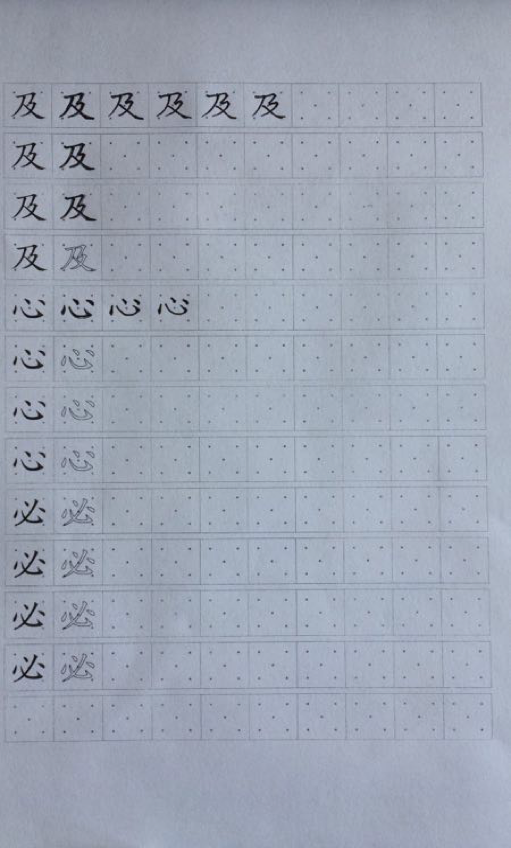 及及及及及及
及及
及及
及及
心心心心
心心
心心
心心
必必
必必
必必
必必